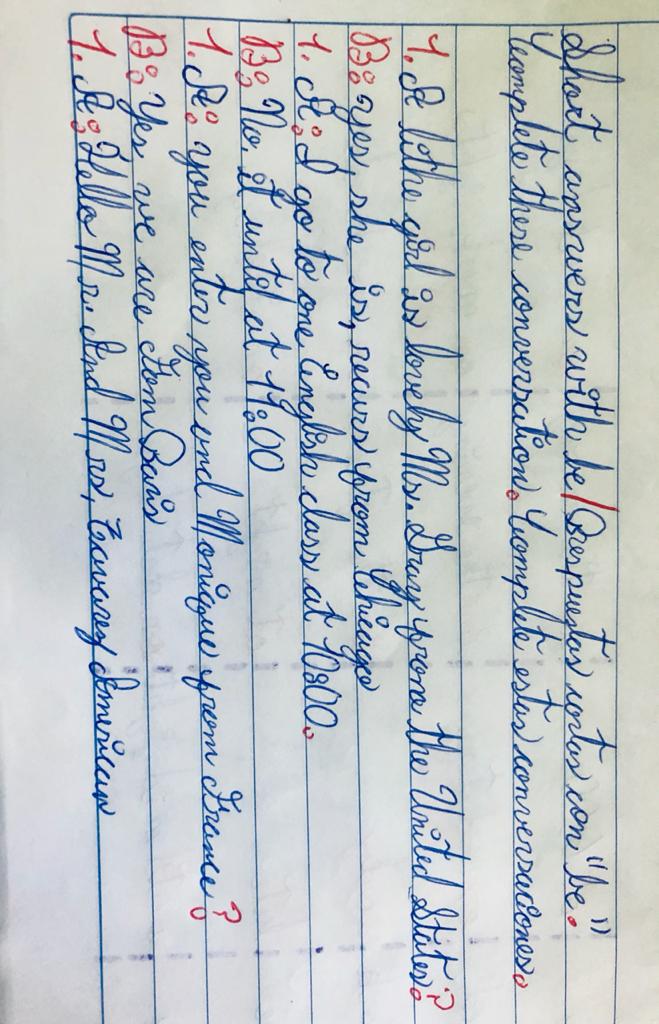 Short answers with be/ Respuestas cortas con "be".
Complete these conversation. Complete estas conversaciones.
1. A lithe girl is lovely Ms. Gray from the United States?
B: yes, she is, recurs from Chicago
1. A: I go to one English class at 10:00.
B: No, it until at 11:00
1. A: you enter you and Monique from France?
B: Yes we are from Paris
1. A: Hello Mr. And Mrs, Tavarez American